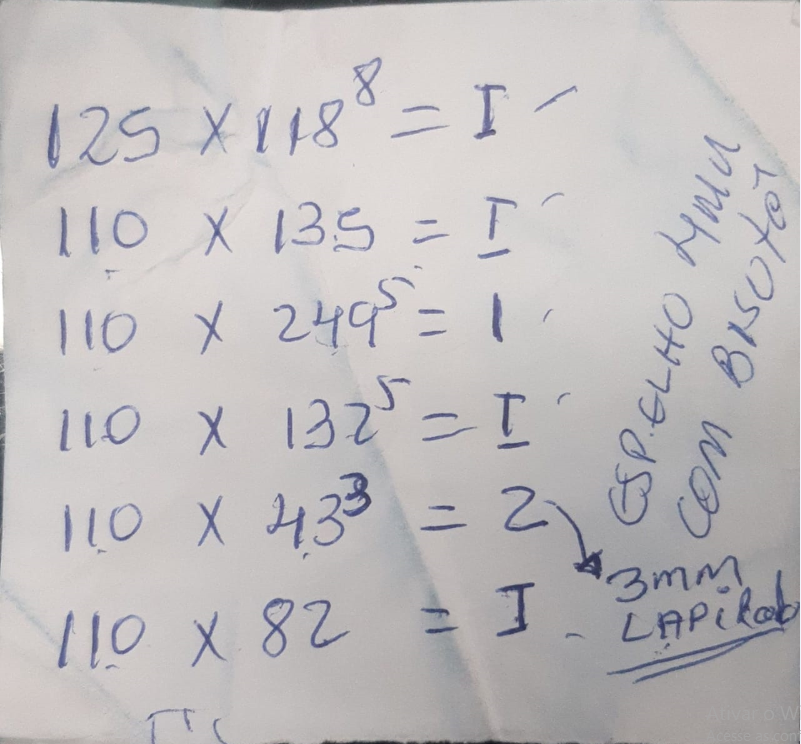 125 X 118⁸ = I
110 X 135 = I
110 X 249⁵ = 1
110 X 132⁵ = I
110 X 43³ = 2
110 X 82 = I
ESPELHO 4MM
COM BISOTÊ
3mm
LAPidado